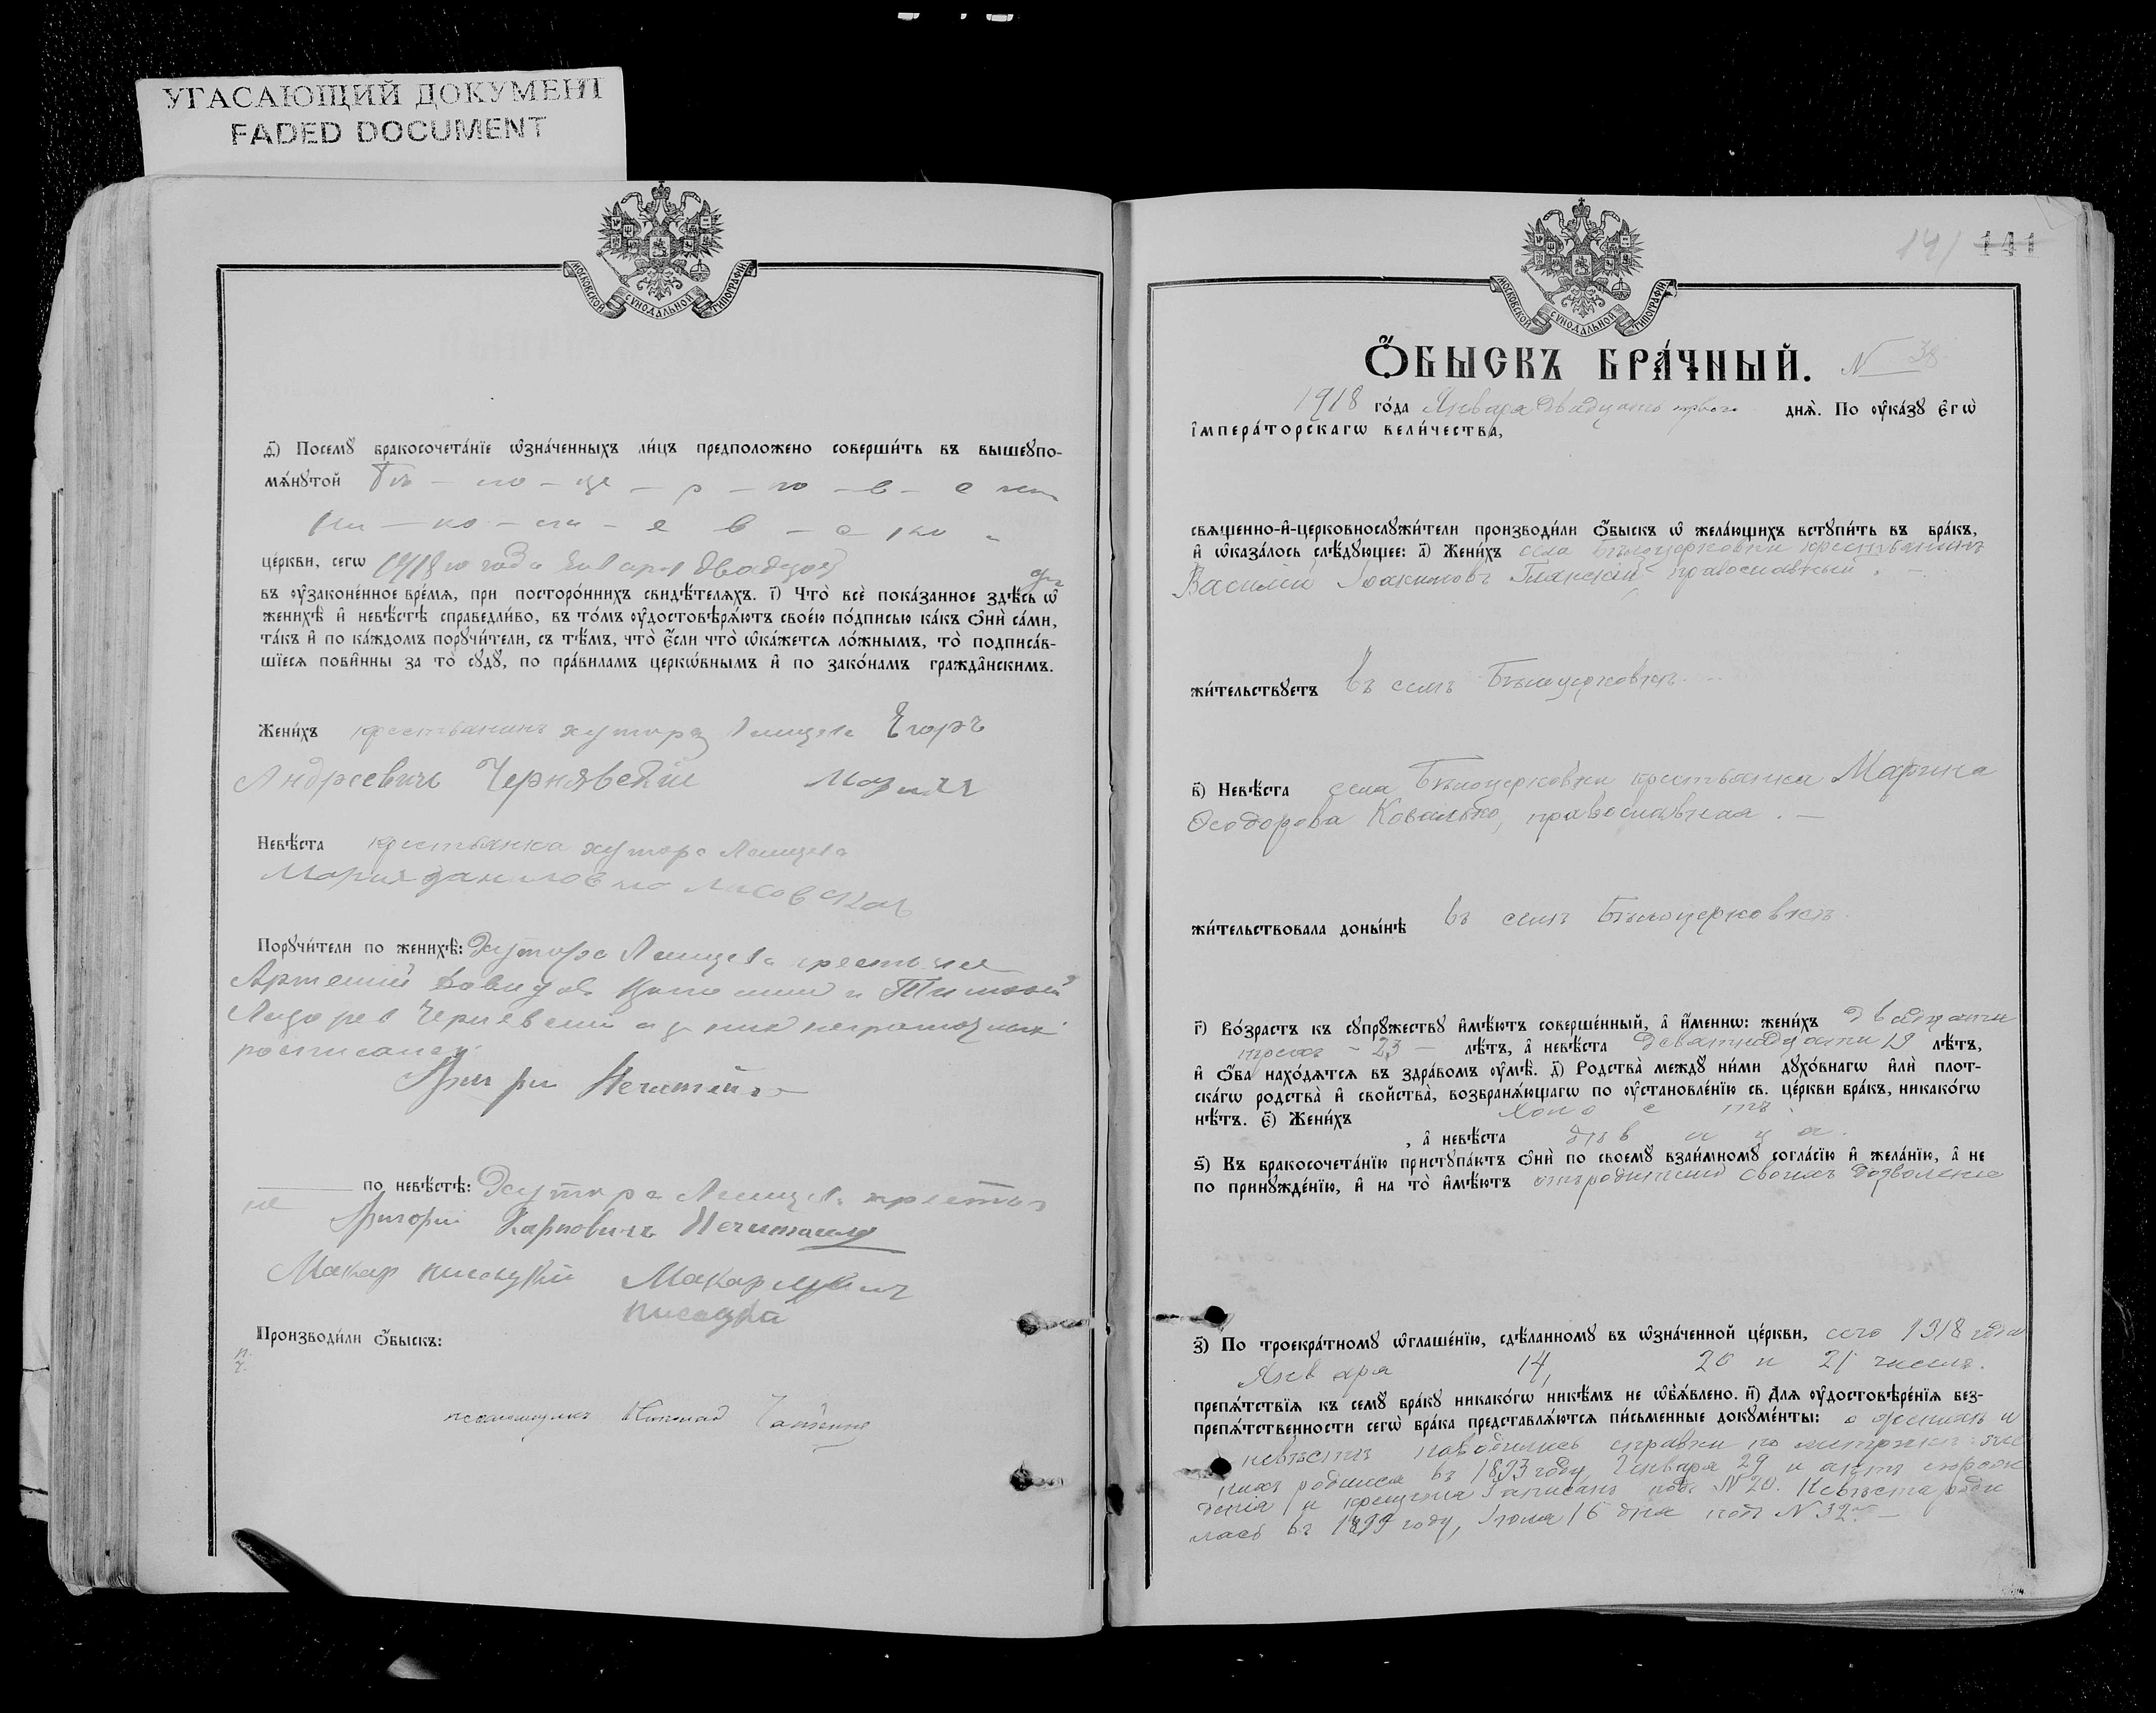 УГАСАЮЩИЙ ДОКУМЕНТ
FADED DOCUMENT
МОСКОВСКОЙ СѴНОДАЛЬНОЙ ТИПОГРАФІИ
д҃і) Посемꙋ бракосочета́нїе ѡ҆зна́ченныхъ ли́цъ предположено соверши́ть въ вышеꙋпо-
мѧ́нꙋтой Бѣ - ло - це - р - ко - в - с кой
це́ркви, сегѡ 1918 го года Января двадцат
въ ᲂу҆законе́нное вре́мѧ, при посторо́ннихъ свидѣ́телѧхъ. і҃) Что̀ всѐ пока́занное здѣ́сь ѡ҆
женихѣ̀ и҆ невѣ́стѣ справедли́во, въ то́мъ ᲂу҆достовѣрѧ́ютъ свое́ю по́дписью ка́къ ѻ҆нѝ са́ми,
та́къ и҆ по ка́ждомъ порꙋчи́тели, съ тѣ́мъ, что̀ є҆́сли что̀ ѡ҆ка́жетсѧ ло́жнымъ, то̀ подписа́в-
шїесѧ пови́нны за то̀ сꙋдꙋ̀, по пра́виламъ церкѡ́внымъ и҆ по зако́намъ гражда́нскимъ.
Жени́хъ крестьянинъ хутора Егоръ
Андреевичъ Чернявскій
Невѣ́ста крестьянка хутора
Мария Даниловна Лисовская
Порꙋчи́тели по женихѣ̀: Хутора крестьяне
Артемий Давидов и Тимофей
росписался
Григорий Нечитайло
по невѣ́стѣ: Хутора крестья
не Григорій Карповичъ Нечитайло
Макар Писоцкий Макар
писоцкй
Производи́ли ѻ҆́быскъ:
псаломщикъ
МОСКОВСКОЙ СѴНОДАЛЬНОЙ ТИПОГРАФІИ
141 141
Ѻ҆́БЫСКЪ БРА́ЧНЫЙ. N 38
1918 го́да Января двадцать перваго днѧ̀. По ᲂу҆ка́зꙋ є҆гѡ̀
і҆мпера́торскагѡ вели́чества,
свѧщенно-и҆-церковнослꙋжи́тели производи́ли ѻ҆́быскъ ѡ҆ жела́ющихъ встꙋпи́ть въ бра́къ,
и҆ ѡ҆каза́лось слѣ́дꙋющее: а҃) Жени́хъ села Бѣлоцерковки крестьянинъ
Василій Іоакимовъ Глинскій православный. -
жи́тельствꙋетъ въ селѣ Бѣлоцерковкѣ.
в҃) Невѣ́ста села Бѣлоцерковки крестьянка Марина
Ѳеодорова Ковалько, православная. -
жи́тельствовала доны́нѣ въ селѣ Бѣлоцерковкѣ
г҃) Во́зрастъ къ сꙋпрꙋ́жествꙋ и҆мѣ́ютъ соверше́нный, а҆ и҆́меннѡ: жени́хъ двадцати
трехъ - 23 - лѣ́тъ, а҆ невѣ́ста девятнадцати 19 лѣ́тъ,
и҆ ѻ҆́ба нахо́дѧтсѧ въ здра́вомъ ᲂу҆мѣ̀. д҃) Родства̀ междꙋ ни́ми дꙋхо́внагѡ и҆лѝ плот-
ска́гѡ родства̀ и҆ сво́йства, возбранѧ́ющагѡ по ᲂу҆становле́нїю св. це́ркви бра́къ, никако́гѡ
нѣ́тъ. є҃) Жени́хъ холо с тъ.
, а҆ невѣ́ста дѣв и ца.
ѕ҃) Къ бракосочета́нїю пристꙋпа́ютъ ѻ҆нѝ по своемꙋ̀ взаи́мномꙋ согла́сїю и҆ жела́нїю, а҆ не
по принꙋжде́нїю, и҆ на то̀ и҆мѣ́ютъ отъ родителей своихъ дозволеніе
з҃) По троекра́тномꙋ ѡ҆глаше́нїю, сдѣ́ланномꙋ въ ѡ҆зна́ченной це́ркви, сего 1918 года
Января 14, 20 и 21 числа.
препѧ́тствїѧ къ семꙋ̀ бра́кꙋ никако́гѡ никѣ́мъ не ѡ҆бъѧ́влено. и҃) Длѧ ᲂу҆достовѣре́нїѧ без-
препѧ́тственности сегѡ̀ бра́ка представлѧ́ютсѧ пи́сьменные докꙋме́нты: о женихѣ и
невѣстѣ наводились справки по метрикѣ: же
нихъ родился въ 1893 году, Января 29 и актъ о рож
денія и крещенія записанъ подъ N 20. Невѣста роди
лась въ 1899 году, Іюля 16 дня подъ N 32. -